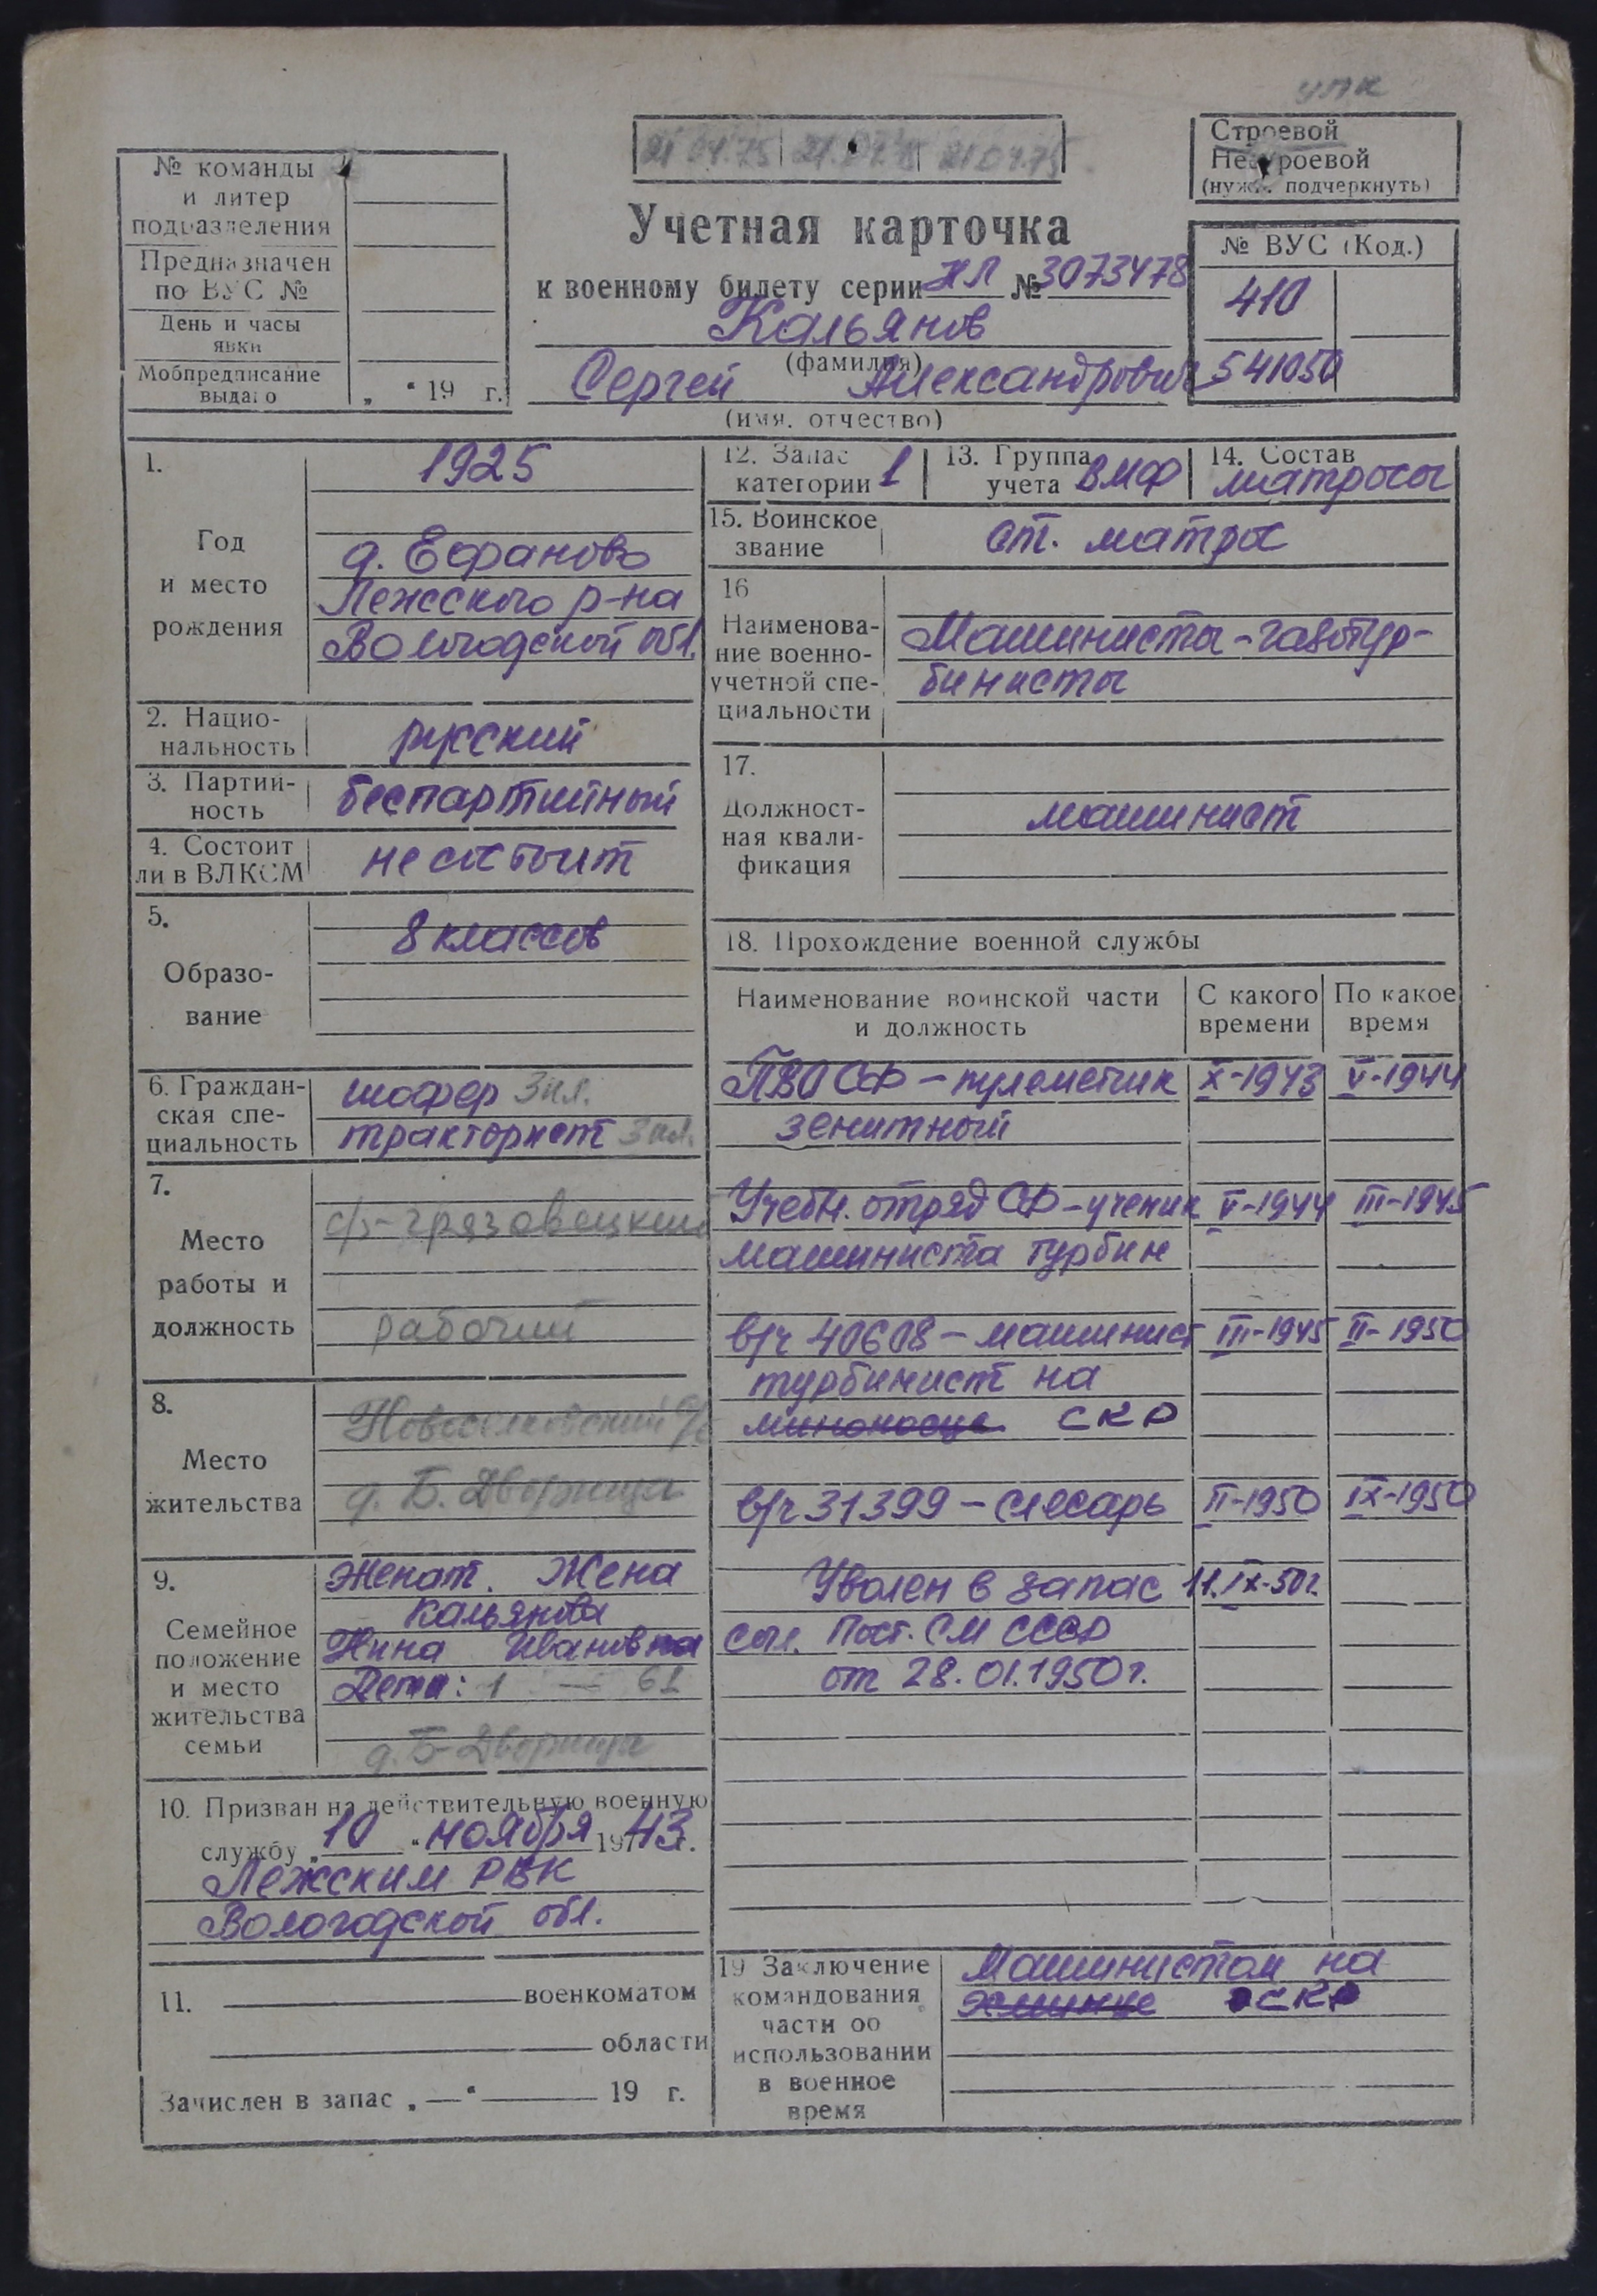 упк
21 04.75 21.04.75 21 04.75
Строевой
Нестроевой
(нужн. подчеркнуть)
№ команды
и литер
подразделения
Предназначен
по ВУС №
День и часы
явки
Мобпредписание
выдано
„ “ 19 г.
Учетная карточка
к военному билету серии НЛ № 3073478
Кальянов
(фамилия)
Сергей Александрович
(имя, отчество)
№ ВУС (Код.)
410
541050
1.
Год
и место
рождения
1925
д. Ефаново
Лежского р-на
Вологодской обл.
2. Нацио-
нальность
русский
3. Партий-
ность
беспартийный
4. Состоит
ли в ВЛКСМ
не состоит
5.
Образо-
вание
8 классов
6. Граждан-
ская спе-
циальность
шофер 3 кл.
тракторист 3 кл.
7.
Место
работы и
должность
с/з-грязовецкий
рабочий
8.
Место
жительства
Новоселковский с/с
д. Б. Дворища
9.
Семейное
положение
и место
жительства
семьи
Женат. Жена
Кальянова
Нина Ивановна
Дети: 1 — 61
д. Б-Дворища
10. Призван на действительную военную
службу „ 10 “ ноября 1943 г.
Лежским РВК
Вологодской обл.
11. военкоматом
области
Зачислен в запас „ — “ 19 г.
12. Запас
категории 1
13. Группа
учета ВМФ
14. Состав
матросы
15. Воинское
звание
ст. матрос
16
Наименова-
ние военно-
учетной спе-
циальности
Машинисты-газотур-
бинисты
17.
Должност-
ная квали-
фикация
машинист
18. Прохождение военной службы
Наименование воинской части
и должность
С какого
времени
По какое
время
ПВО СФ – пулеметчик X-1943 V-1944
зенитный
Учебн. отряд СФ – ученик V-1944 III-1945
машиниста турбин
в/ч 40608 – машинист III-1945 II-1950
турбинист на
миноносце СКР
в/ч 31399 – слесарь II-1950 IX-1950
Уволен в запас 11.IX-50г.
согл. Пост. СМ СССР
от 28.01.1950г.
19 Заключение
командования
части об
использовании
в военное
время
Машинистом на
эсминце СКР